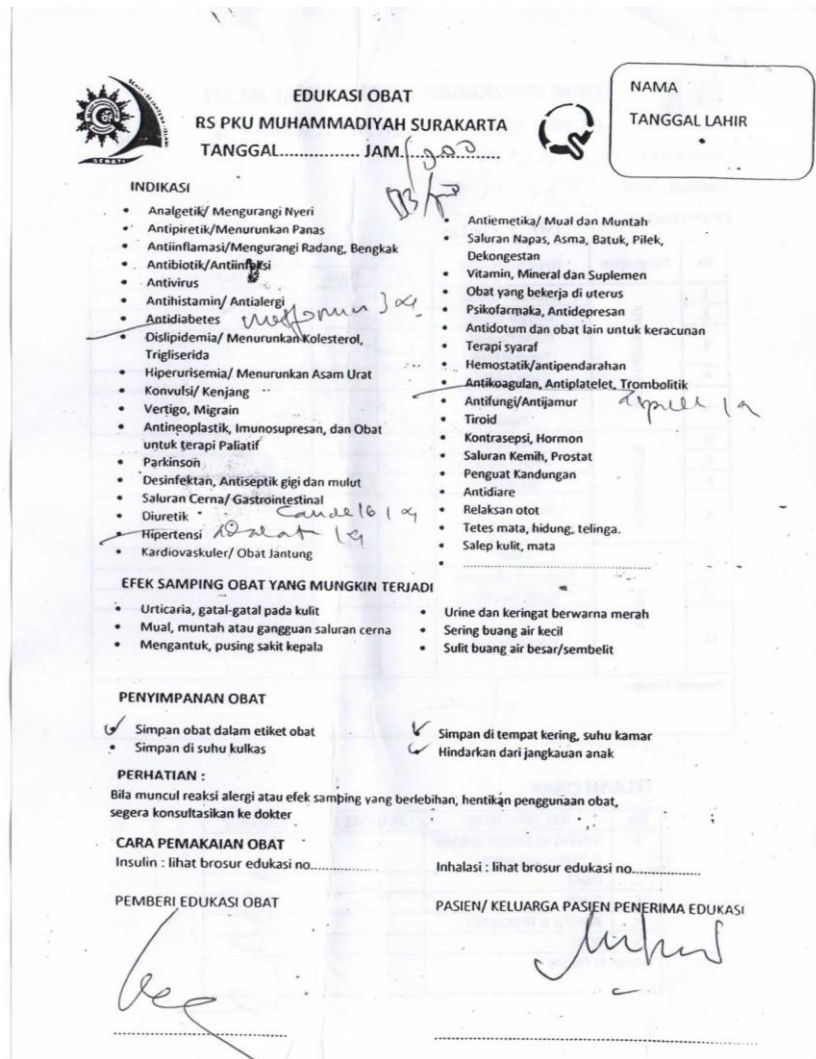 EDUKASI OBAT
RS PKU MUHAMMADIYAH SURAKARTA
TANGGAL................ JAM....................
NAMA
TANGGAL LAHIR
INDIKASI
• Analgetik/ Mengurangi Nyeri
• Antipiretik/Menurunkan Panas
• Antiinflamasi/Mengurangi Radang, Bengkak
• Antibiotik/Antiinfeksi
• Antivirus
• Antihistamin/ Antialergi
• Antidiabetes metformin
• Dislipidemia/ Menurunkan Kolesterol,
Trigliserida
• Hiperurisemia/ Menurunkan Asam Urat
• Konvulsi/ Kenjang
• Vertigo, Migrain
• Antineoplastik, Imunosupresan, dan Obat
untuk terapi Paliatif
• Parkinson
• Desinfektan, Antiseptik gigi dan mulut
• Saluran Cerna/ Gastrointestinal
• Diuretik
• Hipertensi
• Kardiovaskuler/ Obat Jantung
Antiemetika/ Mual dan Muntah
• Saluran Napas, Asma, Batuk, Pilek,
Dekongestan
• Vitamin, Mineral dan Suplemen
• Obat yang bekerja di uterus
• Psikofarmaka, Antidepresan
• Antidotum dan obat lain untuk keracunan
• Terapi syaraf
• Hemostatik/antipendarahan
• Antikoagulan, Antiplatelet, Trombolitik
• Antifungi/Antijamur
• Tiroid
• Kontrasepsi, Hormon
• Saluran Kemih, Prostat
• Penguat Kandungan
• Antidiare
• Relaksan otot
• Tetes mata, hidung, telinga.
• Salep kulit, mata
• ........................................
EFEK SAMPING OBAT YANG MUNGKIN TERJADI
• Urticaria, gatal-gatal pada kulit
• Mual, muntah atau gangguan saluran cerna
• Mengantuk, pusing sakit kepala
• Urine dan keringat berwarna merah
• Sering buang air kecil
• Sulit buang air besar/sembelit
PENYIMPANAN OBAT
Simpan obat dalam etiket obat
• Simpan di suhu kulkas
Simpan di tempat kering, suhu kamar
Hindarkan dari jangkauan anak
PERHATIAN :
Bila muncul reaksi alergi atau efek samping yang berlebihan, hentikan penggunaan obat,
segera konsultasikan ke dokter
CARA PEMAKAIAN OBAT
Insulin : lihat brosur edukasi no................
Inhalasi : lihat brosur edukasi no................
PEMBERI EDUKASI OBAT
PASIEN/ KELUARGA PASIEN PENERIMA EDUKASI